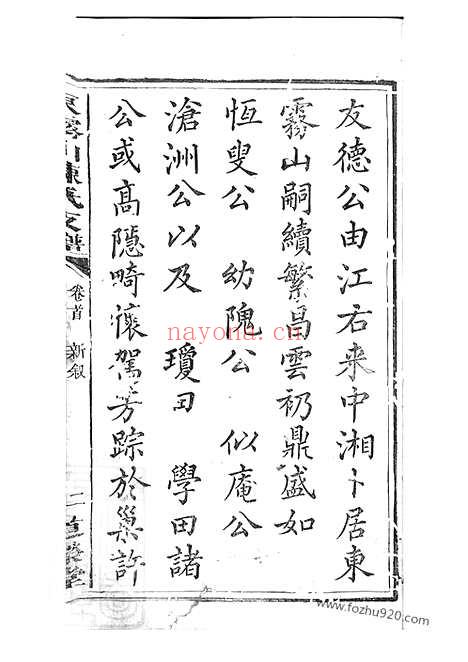 友德公由江右来中湘卜居東
霧山嗣續繁昌雲礽鼎盛如
恆叟公 幼隗公 似庵公
滄洲公以及 瓊田 學田諸
公或高隱畸懷駕芳踪於巢許
東霧山陳氏支譜
卷首 新敘
二
nayona.cn
www.fozhu920.com